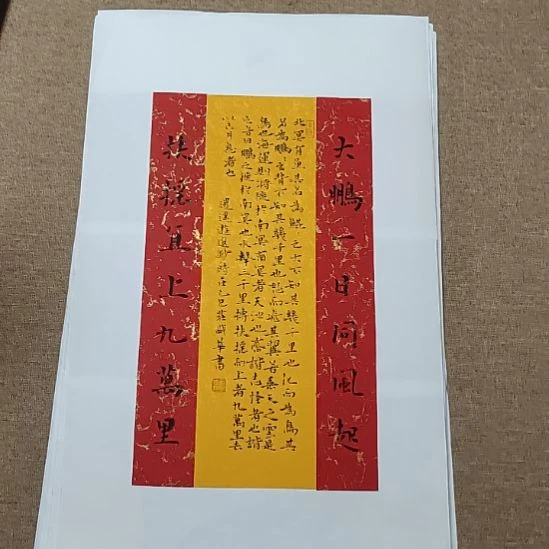 大鵬一日同風起
北冥有魚其名為鯤之大不知其幾千里也化而為鳥其
名為鵬之背不知其幾千里也怒而飛其翼若垂天之雲是
鳥也海運則將徙於南冥南冥者天池也齊諧志怪者也諧
之言曰鵬之徙於南冥也水擊三千里摶扶搖而上者九萬里去
以六月息者也
逍遙遊選抄時在乙巳華書
扶摇直上九萬里